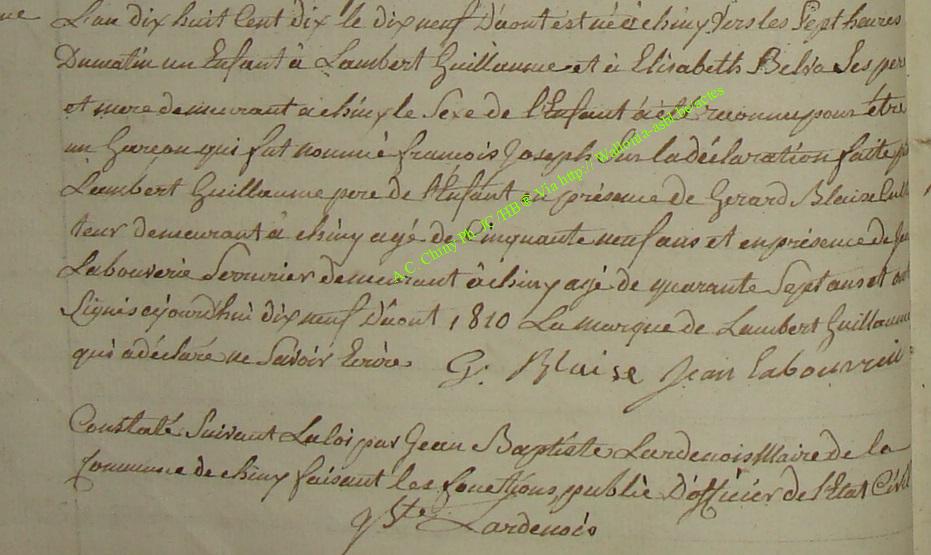 L'an dix huit Cent dix le dix neuf Daout est né à chiny Vers les Sept heures
Dumatin un Enfant à Lambert Guillaume et à Elisabeth Belva Ses per
et mere demeurant a chiny le Sexe de l'Enfant à été reconnu pour être
un Garçon qui fut nommé francois Joseph Sur la déclaration faite p
Lambert Guillaume pere de l'Enfant en présence de Gerard Blaise Cull
teur demeurant à chiny agé de Cinquante neuf ans et en présence de Jean
Labouverie Serrurier demeurant à chiny agé de quarante Sept ans et ont
Signés cejourd'hui dix neuf Daout 1810 La marque de Lambert Guillaume
qui a déclaré ne Savoir Ecrire G. Blaise Jean Labouverie
Constaté Suivant La loi par Jean Baptiste Lardenois Maire de la
Commune de chiny faisant les fonctions publié D'officier de l'Etat Civil
Lardenois
A.C. Chiny Ph JC/HB ® Via http://Wallonia-asbl.be/actes